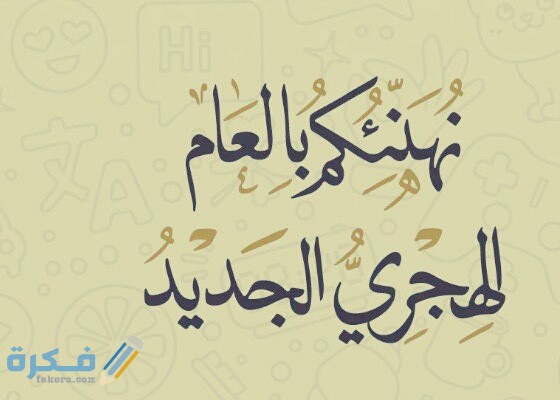 نُهَنِّئُكُم بِالعَام
الهِجْرِيُّ الجَدِيْدُ
فكرة
fekera.com
Hi
文A